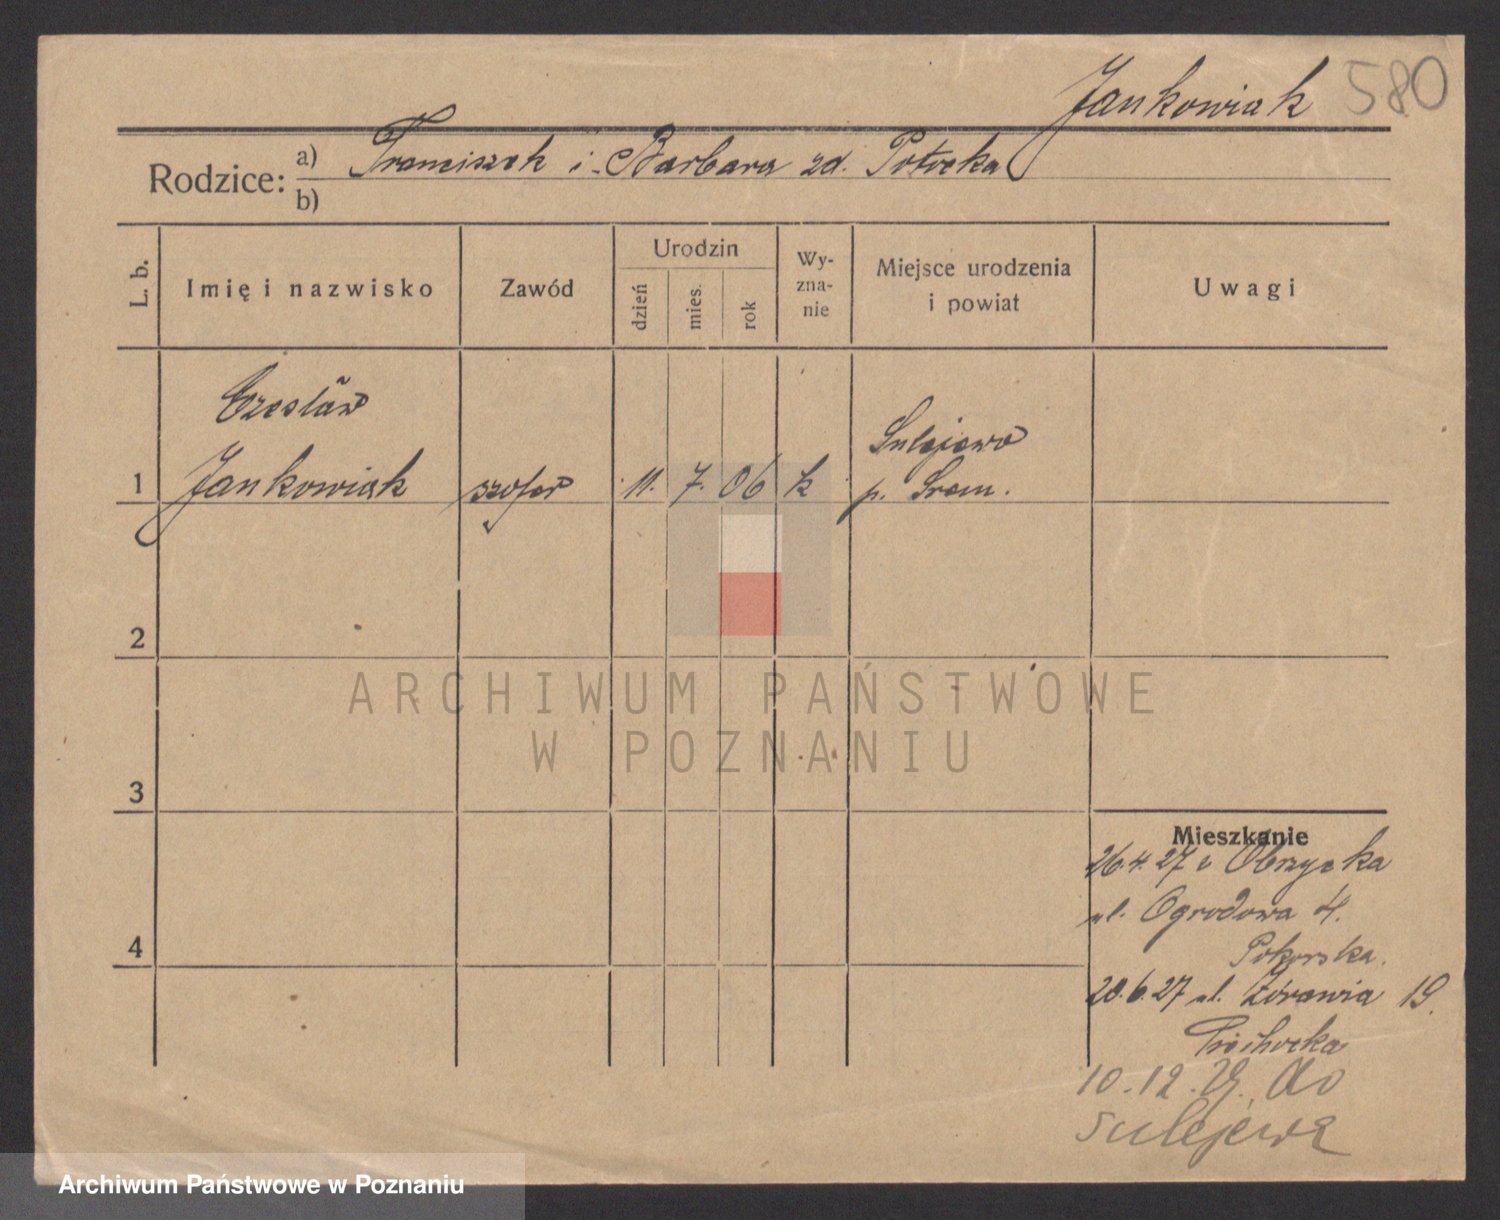 Jankowiak 580
Rodzice: a) Franciszek i Barbara zd. Potocka
b)
L. b.
Imię i nazwisko
Zawód
Urodzin
dzień
mies.
rok
Wy-
zna-
nie
Miejsce urodzenia
i powiat
Uwagi
Czesław
Jankowiak
1
szofer
11. 7. 06
k
Sulejewo
p. Śrem.
2
3
4
Mieszkanie
26.4.27 z Obrzycka
ul. Ogrodowa 4.
Pokorska.
20.6.27 ul. Żórawia 19.
Prochocka
10.12.29. do
Sulejewa
ARCHIWUM PAŃSTWOWE
W POZNANIU
Archiwum Państwowe w Poznaniu